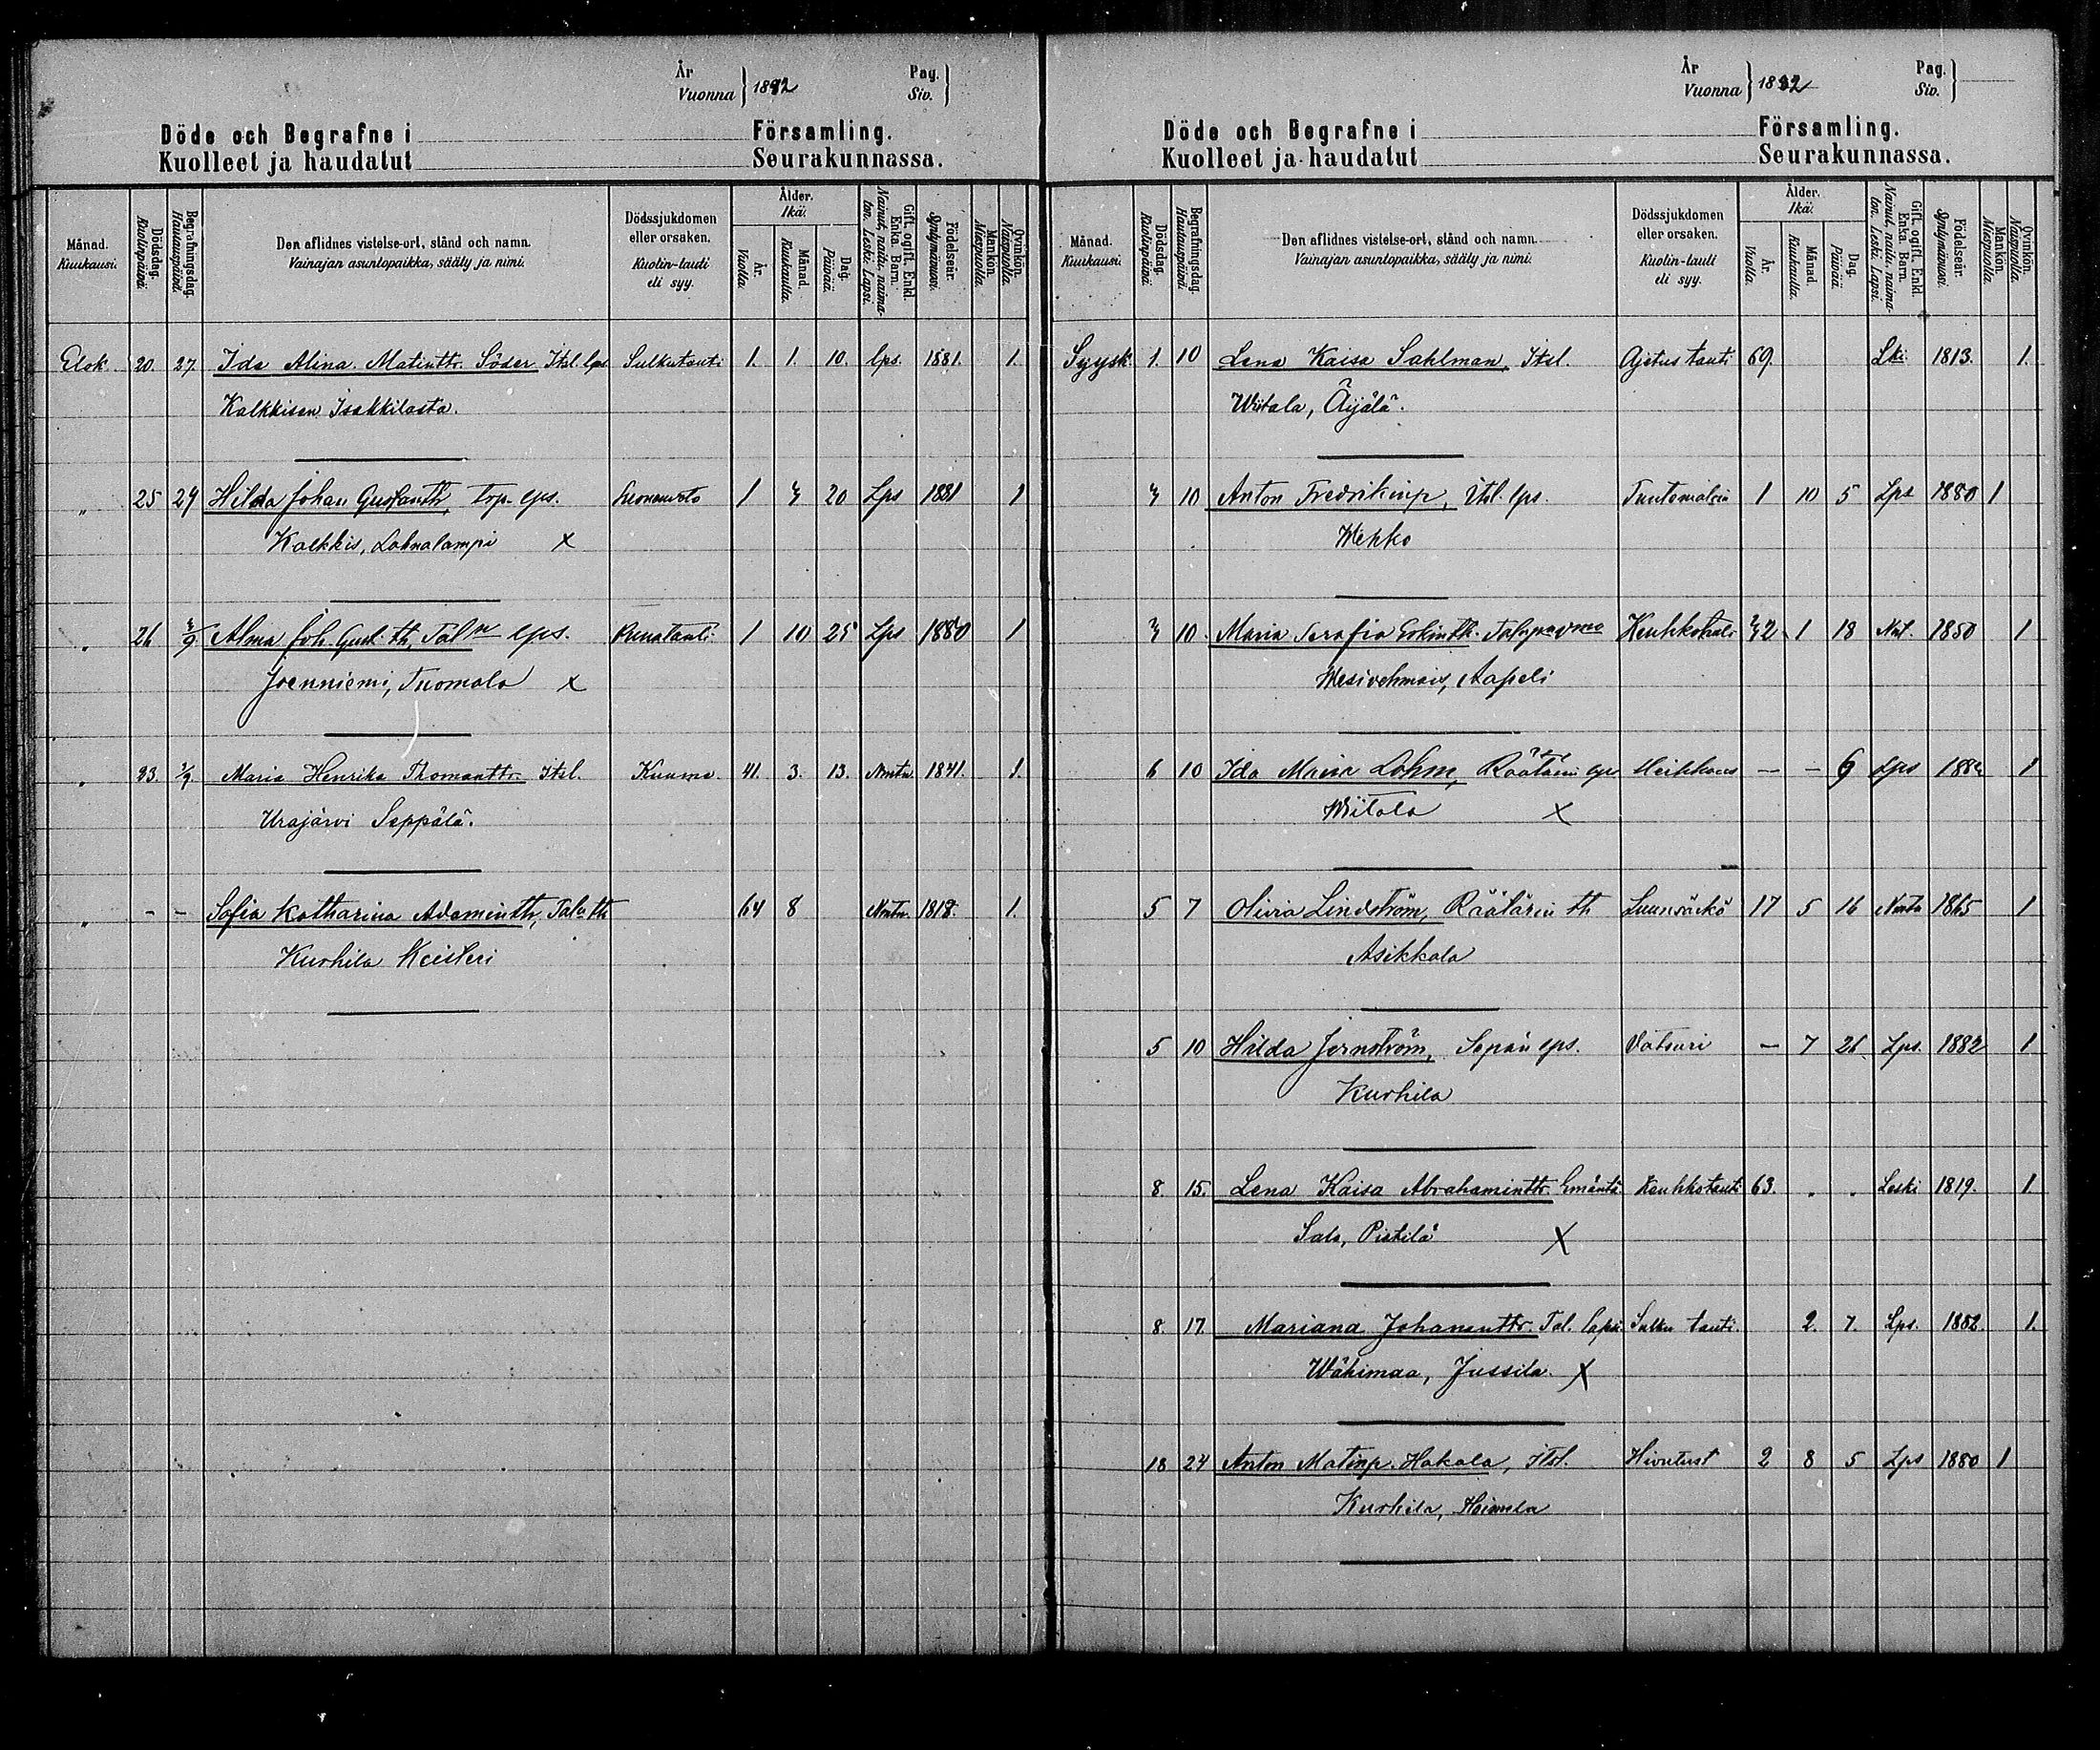 År
Vuonna } 1882
Pag.
Siv.
Döde och Begrafne i Församling.
Kuolleet ja haudatut Seurakunnassa.
Månad. Kuukausi.
Dödsdag. Kuolinpäivä.
Begrafningsdag. Hautauspäivä.
Den aflidnes vistelse-ort, stånd och namn.
Vainajan asuntopaikka, sääty ja nimi.
Dödssjukdomen eller orsaken.
Kuolin-tauti eli syy.
Ålder. Ikä.
År. Vuotta.
Månad. Kuukautta.
Dag. Päivää.
Gift, ogift. Enkl. Enka. Barn.
Nainut, naitu, naimaton. Leski. Lapsi.
Födelseår. Syntymävuosi.
Mankön. Miespuolia.
Qvinkön. Naispuolia.
Elok. 20. 27. Ida Alina Matinttr. Söder Itsl. lps Sulkutauti 1. 1. 10. lps. 1881. 1.
Kalkkisen Isakkilasta.
" 25 29 Hilda Johan Gustanth, Torp. lps. 1 20 Lps 1881 1
Kalkkis, Lahnalampi x
" 26 Alma Joh. Gust. th, Tal lps. Punatauti 1 10 25 Lps 1880 1
Joenniemi, Tuomala x
" 23. 1/9. Maria Henrika Thomanttr. Itsl. Kuume 41. 3. 13. 1841. 1.
Urajärvi Seppälä.
" - - Sofia Katharina Adaminth, Tal. th 64 8 1818. 1.
Kurhila Keisteri
År
Vuonna } 1882
Pag.
Siv.
Döde och Begrafne i Församling.
Kuolleet ja haudatut Seurakunnassa.
Månad. Kuukausi.
Dödsdag. Kuolinpäivä.
Begrafningsdag. Hautauspäivä.
Den aflidnes vistelse-ort, stånd och namn.
Vainajan asuntopaikka, sääty ja nimi.
Dödssjukdomen eller orsaken.
Kuolin-tauti eli syy.
Ålder. Ikä.
År. Vuotta.
Månad. Kuukautta.
Dag. Päivää.
Gift, ogift. Enkl. Enka. Barn.
Nainut, naitu, naimaton. Leski. Lapsi.
Födelseår. Syntymävuosi.
Mankön. Miespuolia.
Qvinkön. Naispuolia.
Syysk. 1. 10 Lena Kaisa Sahlman, Itsl. Ajetus tauti 69. Lki 1813. 1.
Wiitala, Äijälä.
10 Anton Fredrikinp, Itsl. lps. Tuntematoin 1 10 5 Lps 1880 1
Wehko
10. Maria Serafia Erkinth. Keuhkotauti 1 18 Nat. 1850 1
Wesivehmais, Aapeli
6 10 Ida Maria Lohm, Räätärin lps Heikkous — — 9 Lps 1882 1
Wiitala x
5 7 Olivia Lindström, Räätärin th 17 5 16 1865 1
Asikkala
5 10 Hilda Jernström, Sepän lps. Vatsuri — 7 26 Lps. 1882 1
Kurhila
8. 15. Lena Kaisa Abrahaminttr. Emäntä Keuhkotauti 63. . . Leski 1819. 1
Salo, Pietilä x
8. 17. Mariana Johananttr. Tal. lapsi. Sulku tauti. 2. 7. Lps. 1882. 1.
Wähimaa, Jussila. x
18 24 Anton Matinp. Hakala, Itsl. Hivutust 2 8 5 Lps 1880 1
Kurhila, Heimela